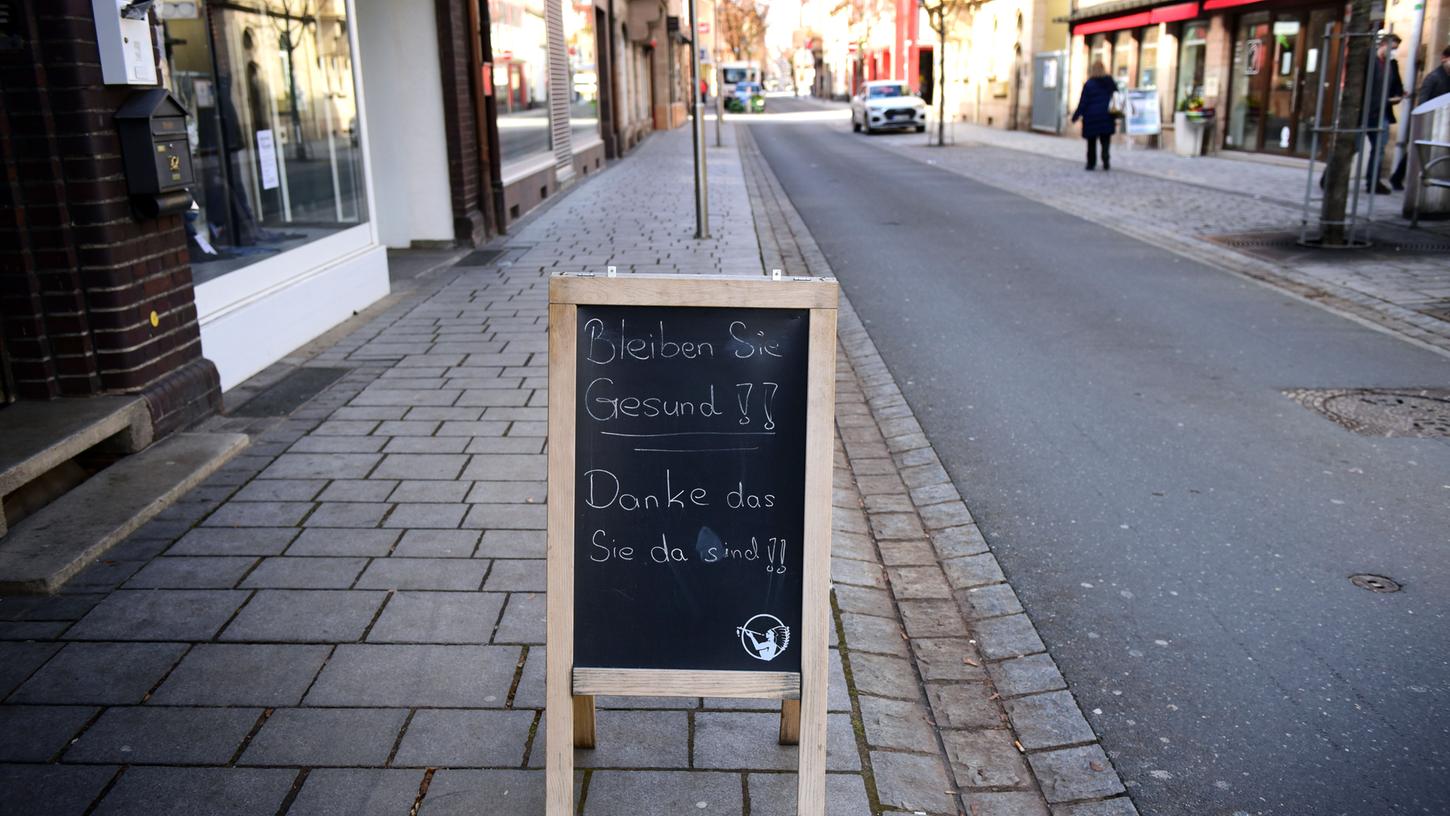 Bleiben Sie
Gesund !!
Danke das
Sie da sind!!